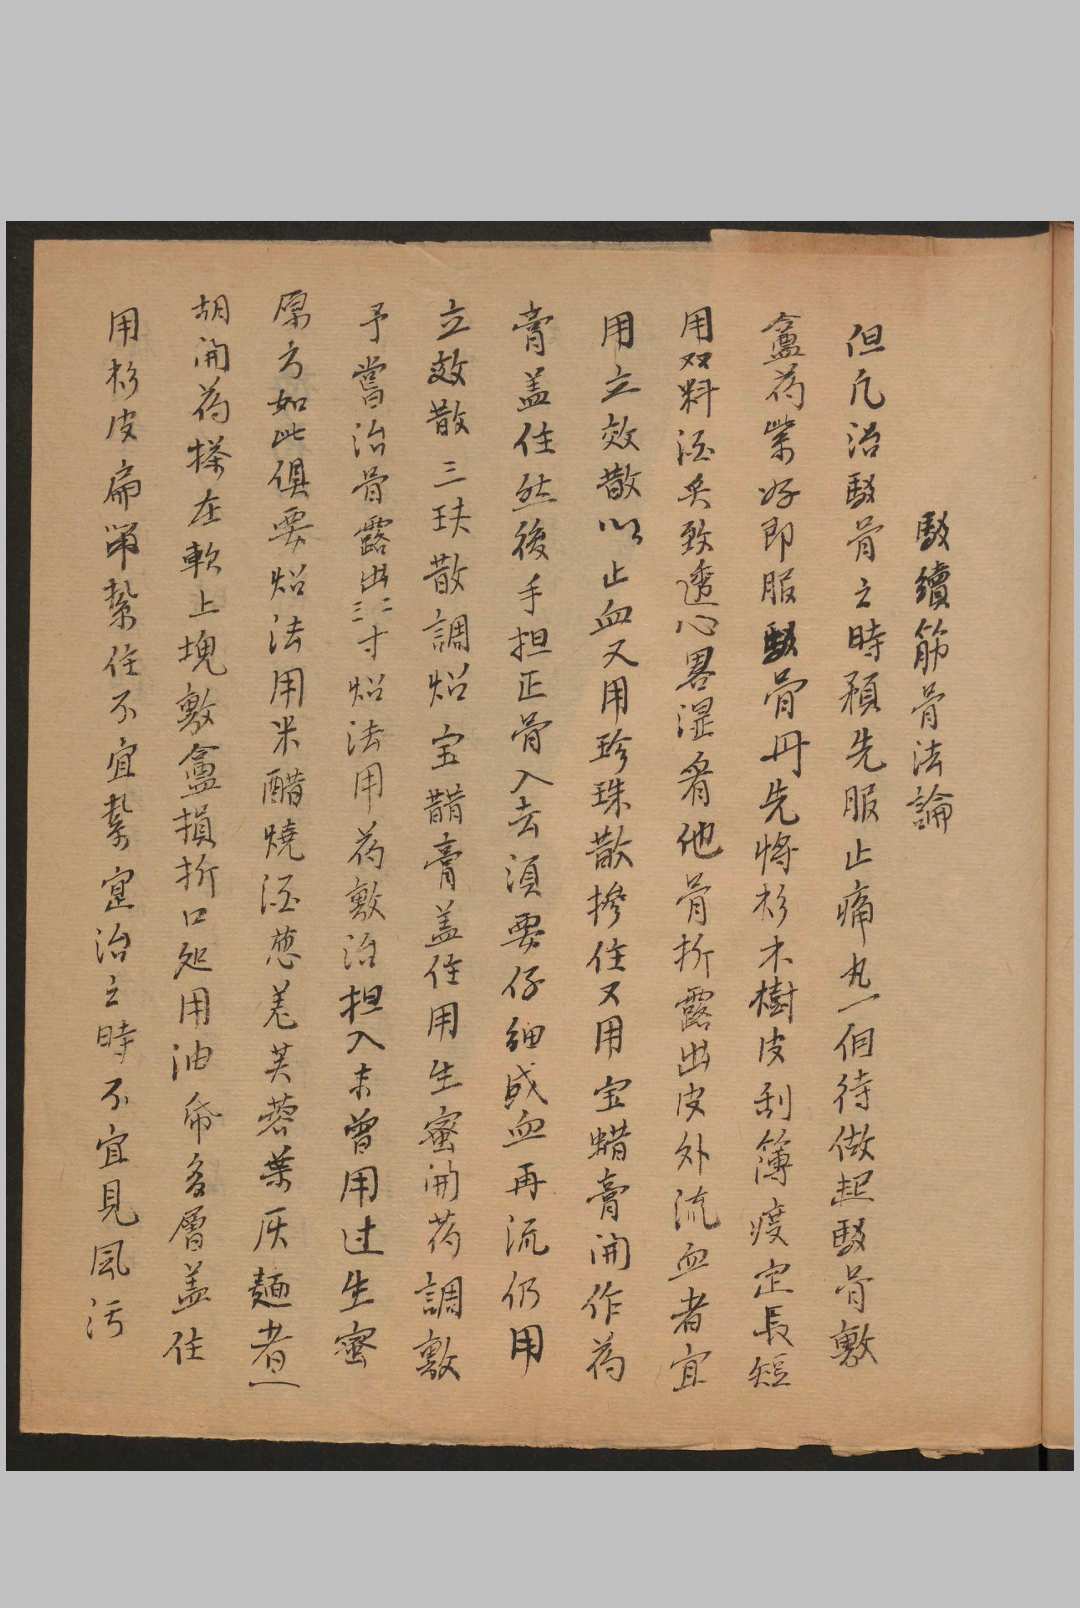 駁續筋骨法論
但凡治駁骨之時預先服止痛丸一個待做起駁骨敷
盦药紫好即服駁骨丹先将杉木樹皮刮簿度定長短
用双料酒炙致透心畧湿看他骨折露出皮外流血者宜
用立效散以止血又用珍珠散摻住又用宝蜡膏開作药
膏盖住然後手担正骨入去須要仔細或血再流仍用
立效散三玞散調焰宝蜡膏盖住用生蜜開药調敷
予嘗治骨露出二三寸焰法用药敷治担入未曾用过生蜜
原方如此俱要焰法用米醋燒酒葱羌芙蓉葉灰麵煮一
胡開药搽在軟上塊敷盦損折口処用油帋多層盖住
用杉皮扁𢂿紮住不宜紮寔治之時不宜見風污